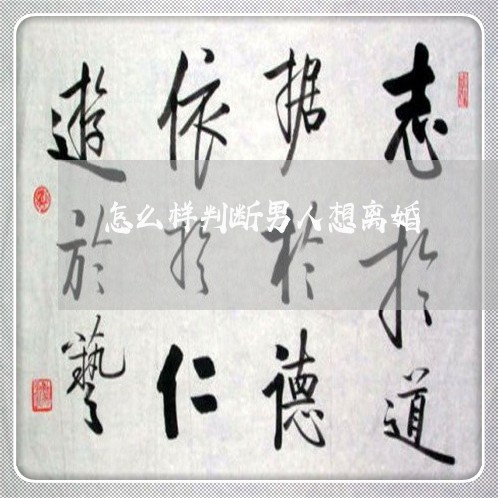 志於道
据於德
依於仁
遊於藝
怎么样判断男人想离婚